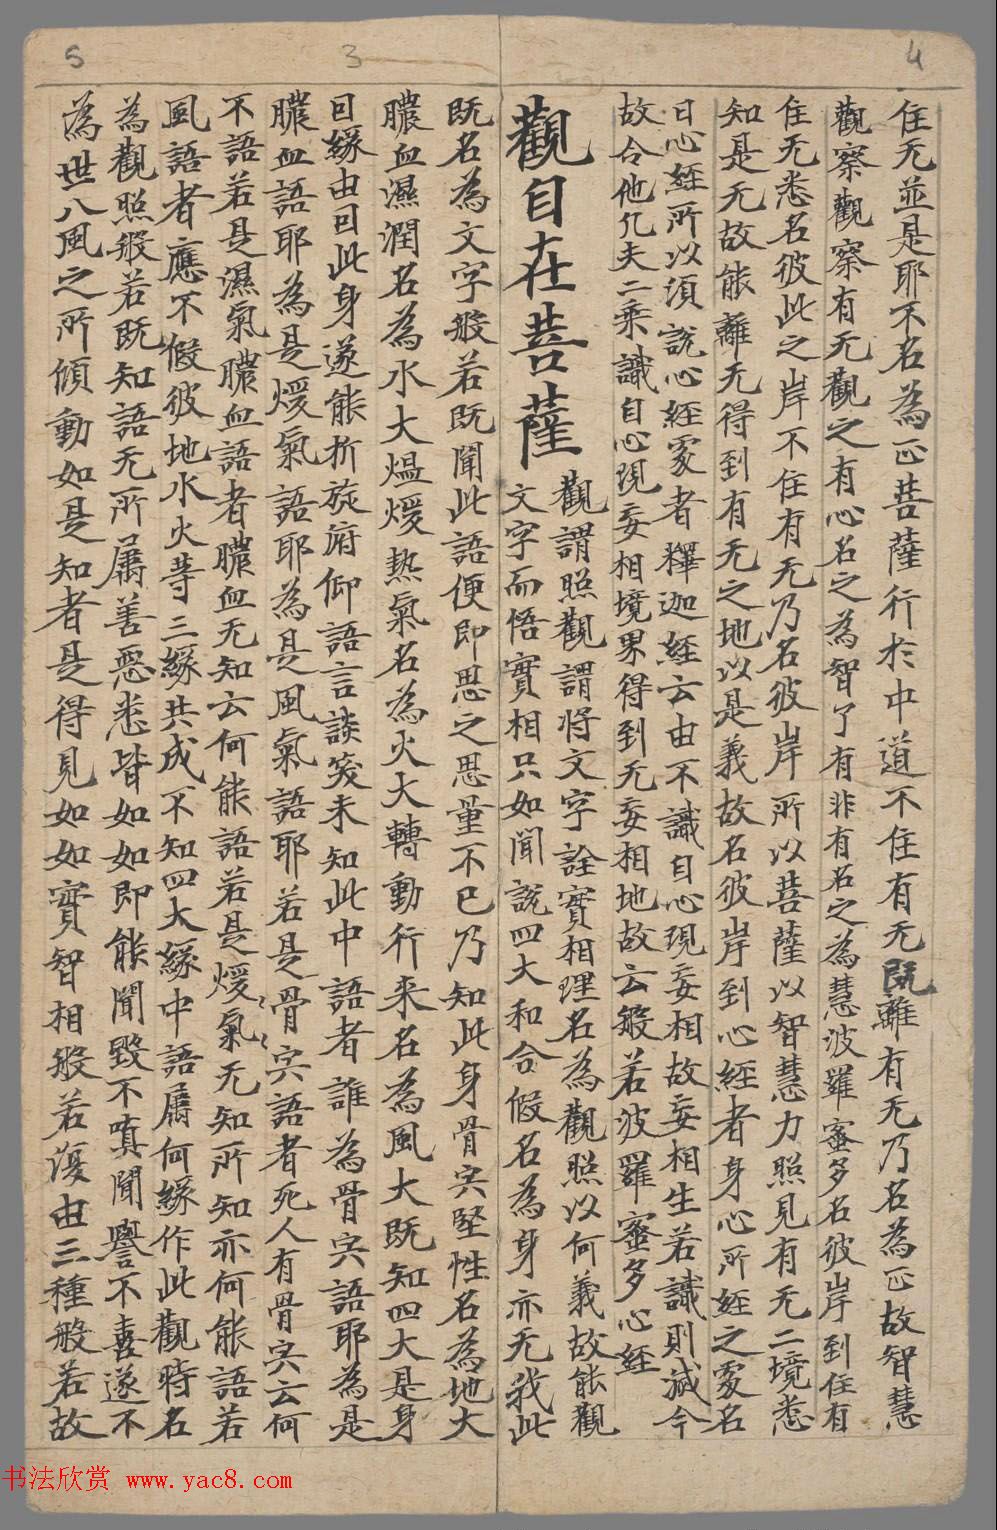 4
3
5
住无並是耶不名為正菩薩行於中道不住有无既離有无乃名為正故智慧
觀察觀察有无觀之有心名之為智了有非有名之為慧波羅蜜多名彼岸到住有
住无悉名彼此之岸不住有无乃名彼岸所以菩薩以智慧力照見有无二境悉
知是无故能離无得到有无之地以是義故名彼岸到心經者身心所經之處名
曰心經所以須說心經家者釋迦經云由不識自心現妄相故妄相生若識則滅今
故合他凡夫二乘識自心現妄相境界得到无妄相地故云般若波羅蜜多心經
觀自在菩薩
觀謂照觀謂將文字詮實相理名為觀照以何義故能觀
文字而悟實相只如聞說四大和合假名為身亦无我此
既名為文字般若既聞此語便即思之思量不已乃知此身骨宍堅性名為地大
膿血濕潤名為水大熅煖熱氣名為火大轉動行来名為風大既知四大是身
曰緣由曰此身遂能折旋俯仰語言談笑未知此中語者誰為骨宍語耶為是
膿血語耶為是煖氣語耶為是風氣語耶若是骨宍語者死人有骨宍云何
不語若是濕氣膿血語者膿血无知云何能語若是煖氣无知所知亦何能語若
風語者應不假彼地水火等三緣共成不知四大緣中語屬何緣作此觀時名
為觀照般若既知語无所屬善惡悉皆如如即能聞毀不嗔聞譽不喜遂不
為世八風之所傾動如是知者是得見如如實智相般若復由三種般若故
书法欣赏 www.yac8.com